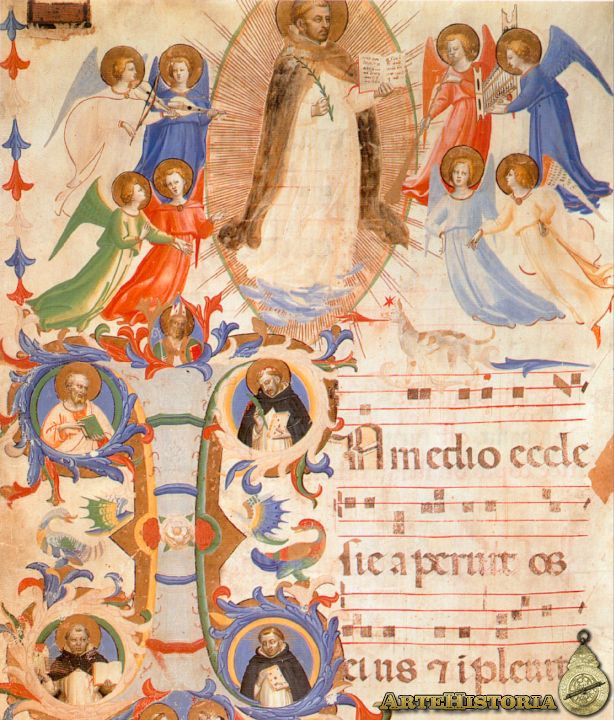 N medio eccle
sie aperuit os
eius ⁊ ipleuit
ARTEHISTORIA